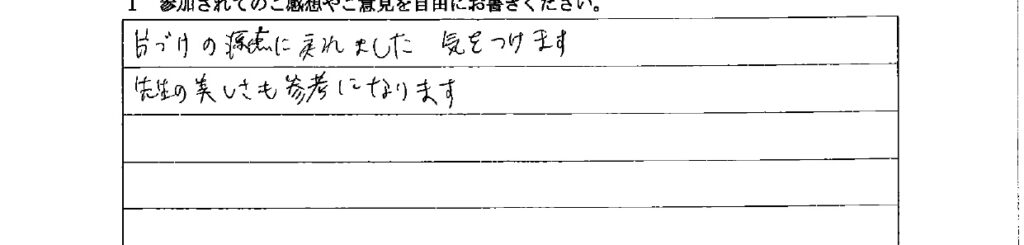 1 参加されてのご感想やご意見を自由にお書きください。
片づけの源点に戻れました 気をつけます
先生の美しさも参考になります